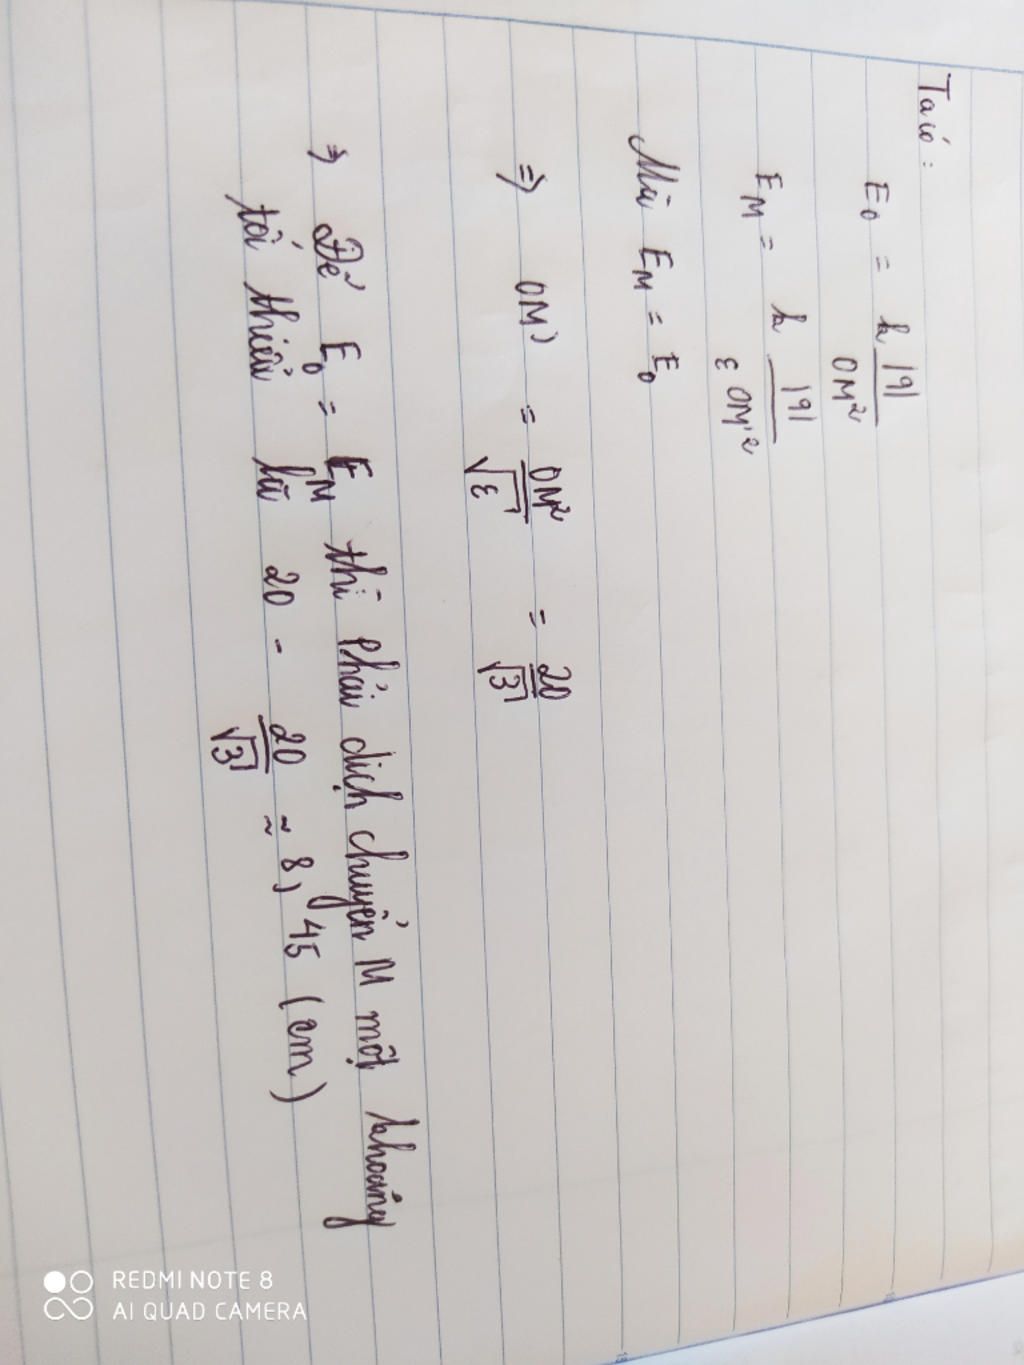 Ta có:
E₀ = k |q| / OM²
E_M = k |q| / ε OM'²
Mà E_M = E₀
⇒ OM' = OM² / √ε = 20 / √3
⇒ Để E₀ = E_M thì phải dịch chuyển M một khoảng
tối thiểu là 20 - 20 / √3 ≈ 8,45 (cm)
REDMI NOTE 8
AI QUAD CAMERA